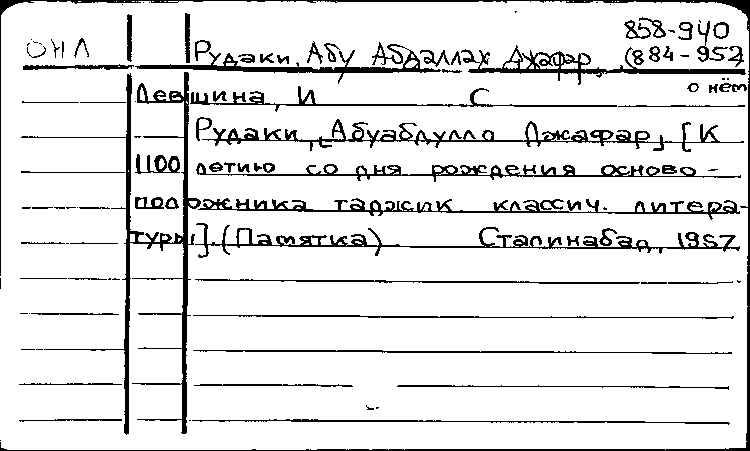 858-940
ОНЛ Рудаки, Абу Абдаллах Джафар, (884-952)
о нём
Левшина, И С
Рудаки, Абуабдулло Джафар. [К
1100 летию со дня рождения осново-
положника таджик. классич. литера-
туры]. (Памятка) Сталинабад, 1957